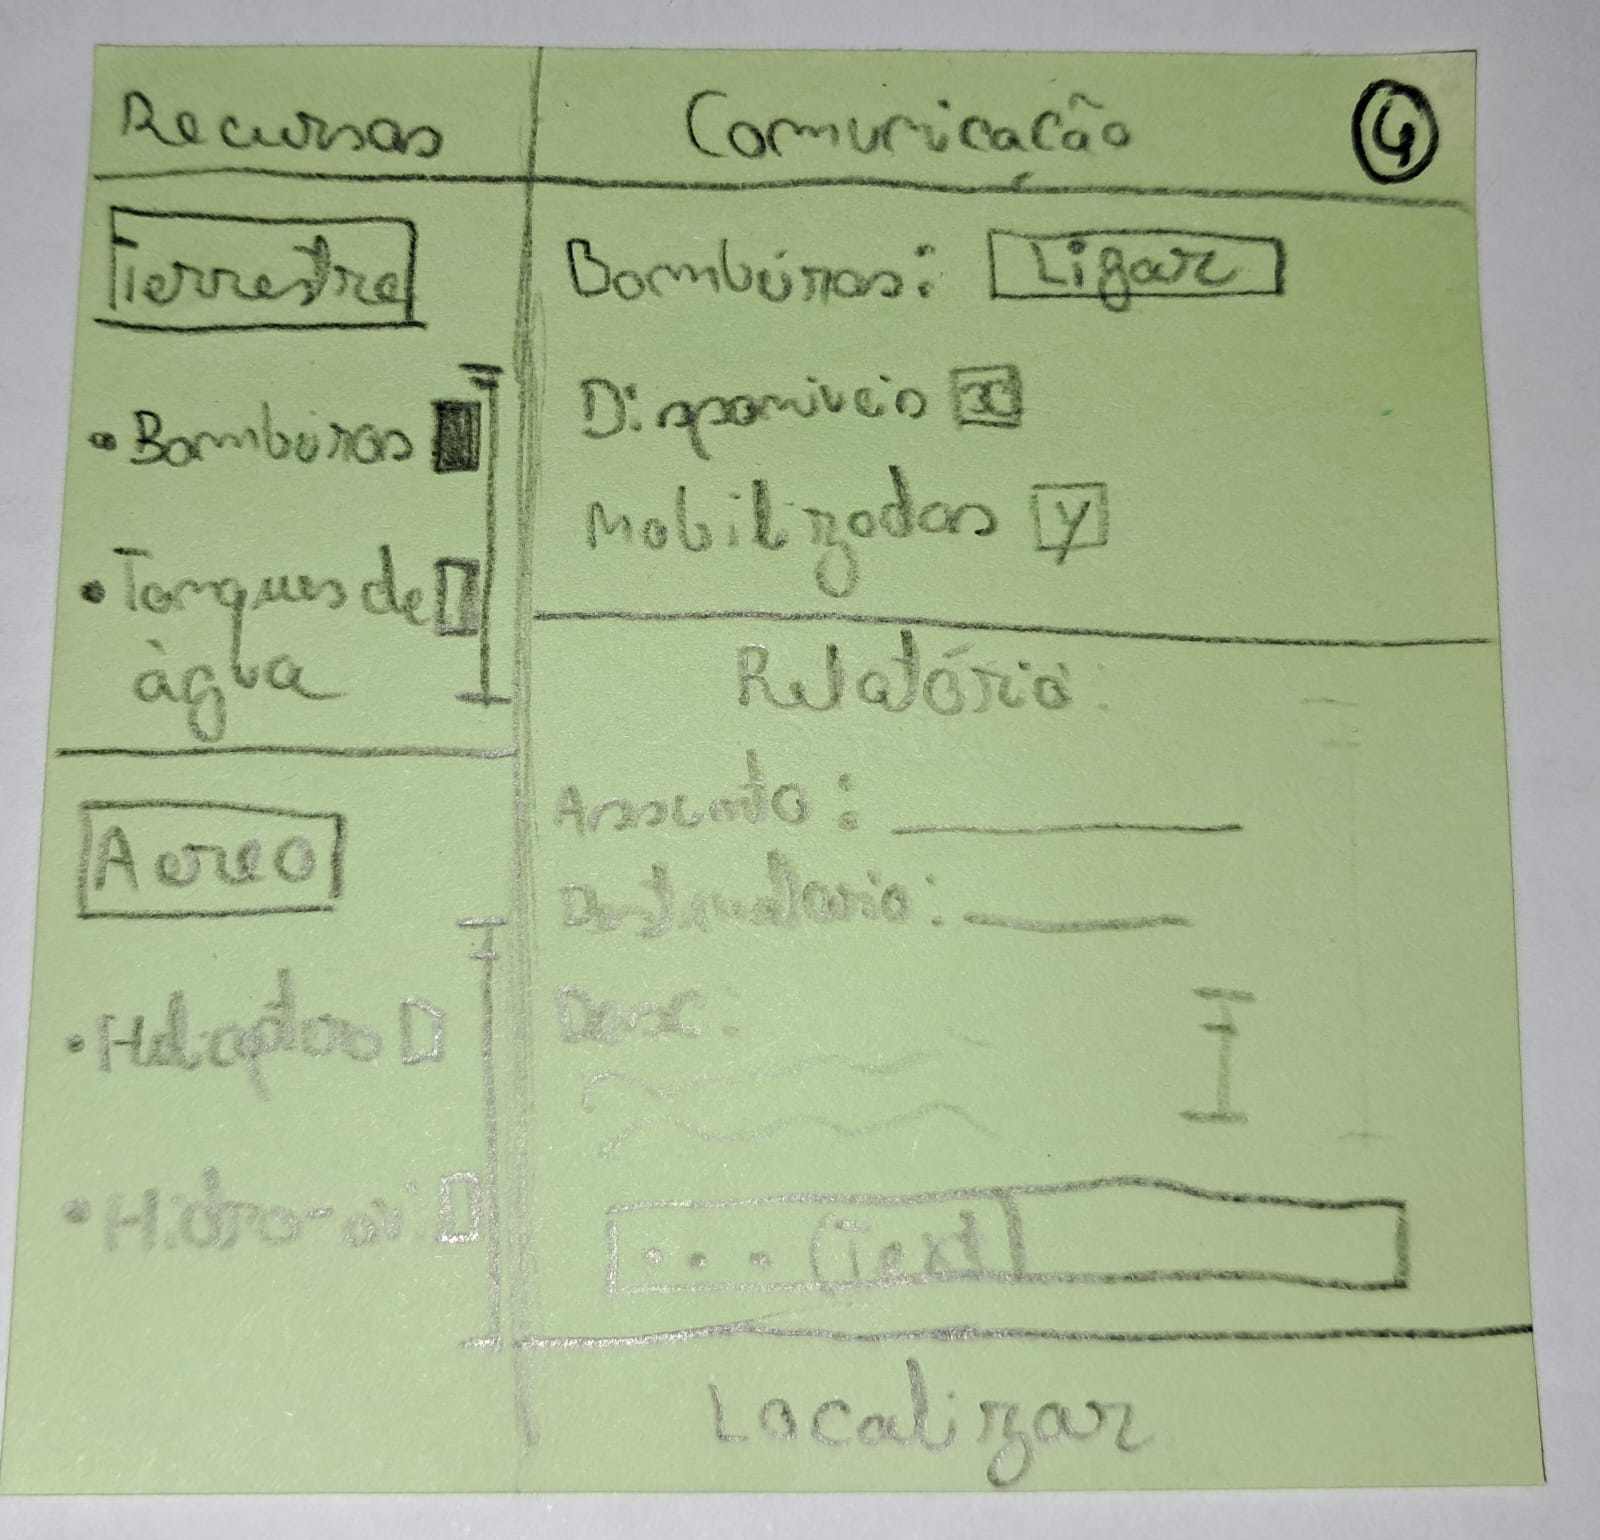 Recursos
Comunicação
4
Terrestre
• Bombeiros
• Tanques de
àgua
Aereo
• Helicoptero
• Hidro-avi
Bombeiros: Ligar
Disponiveis x
Mobilizados y
Relatório:
Assunto:
Destinatario:
Desc:
... (Text)
Localizar